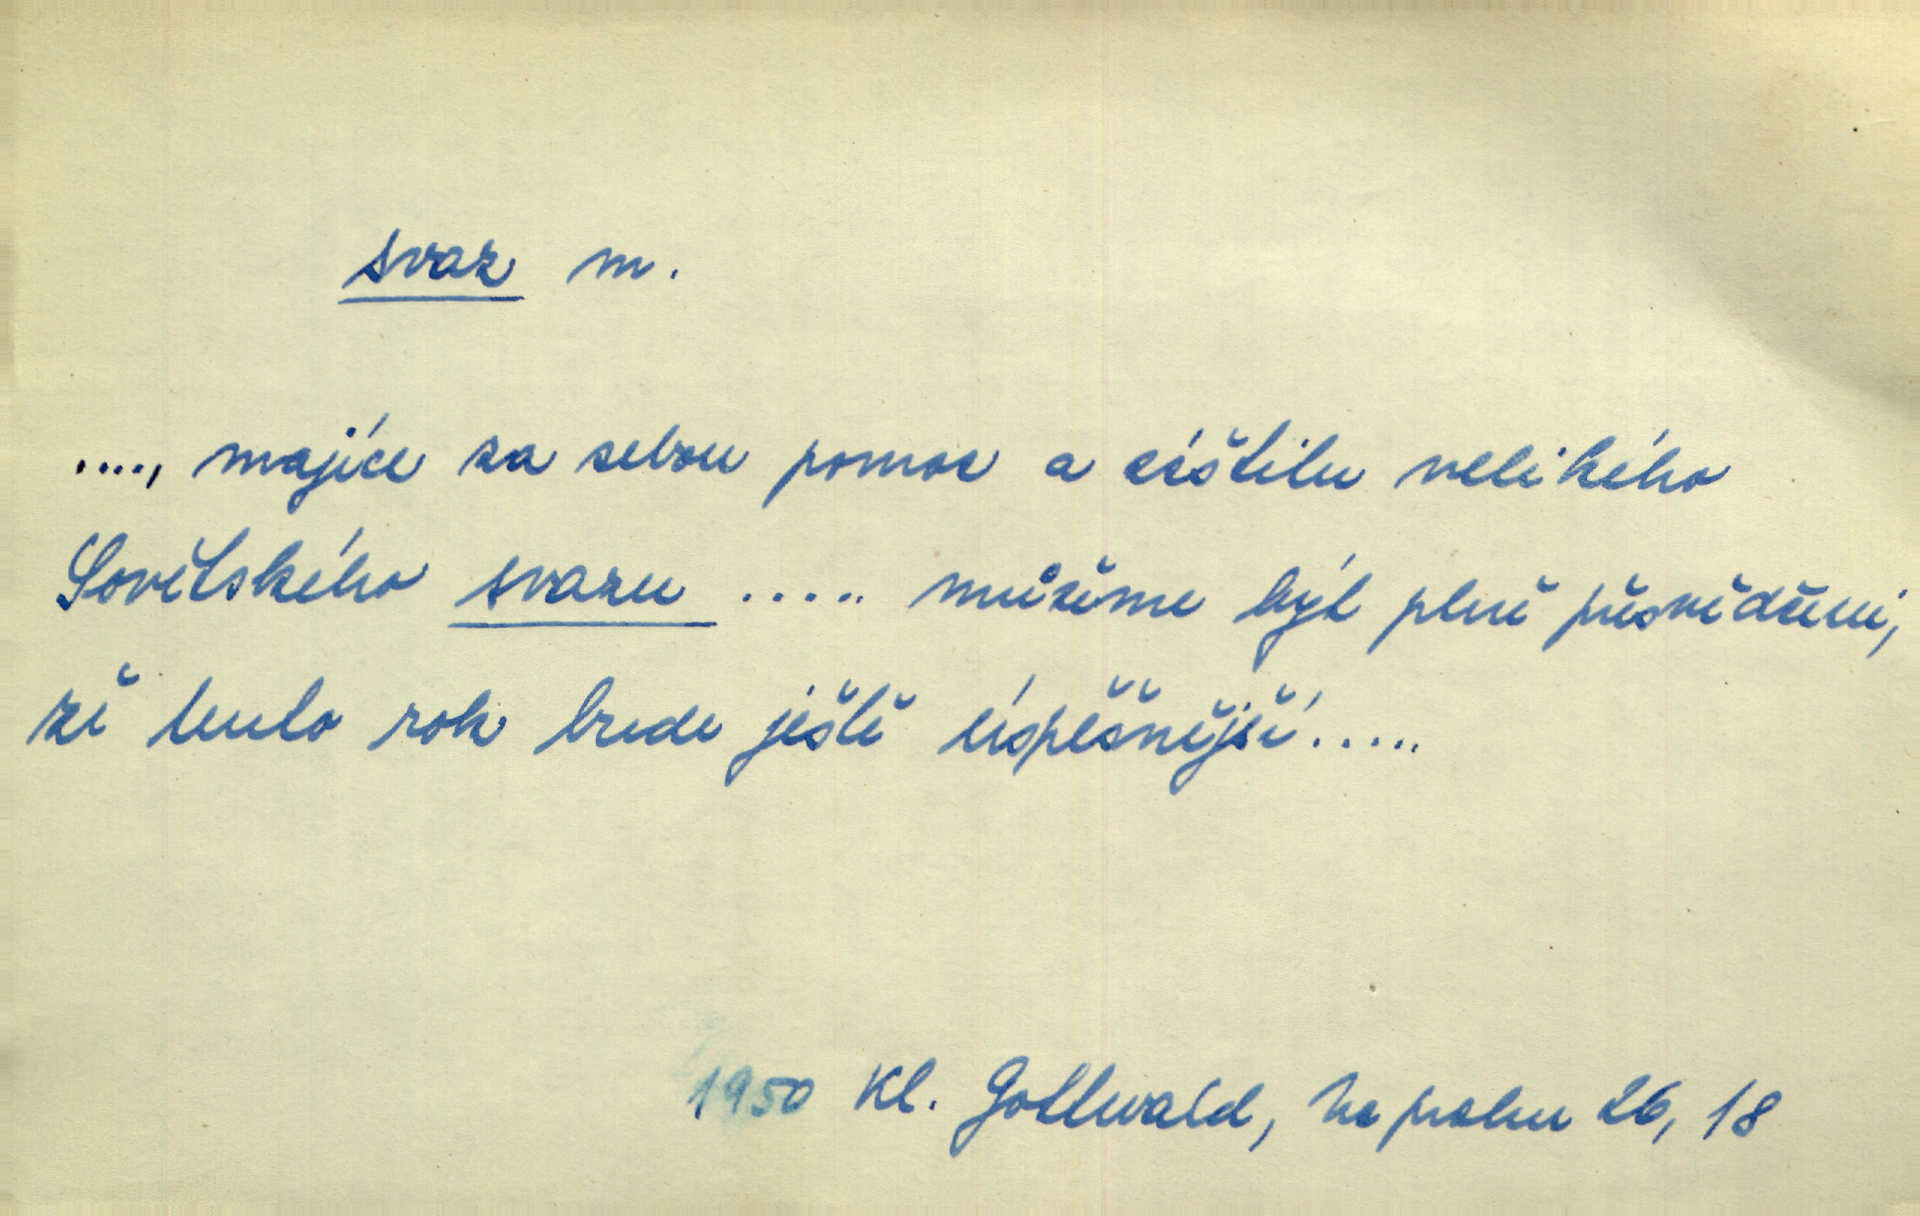 svaz m.
...., majíce za sebou pomoc a záštitu velikého
Sovětského svazu ..... můžeme být plně přesvědčeni,
že tento rok bude ještě úspěšnější.....
1950 Kl. Gottwald, Na prahu 26, 18